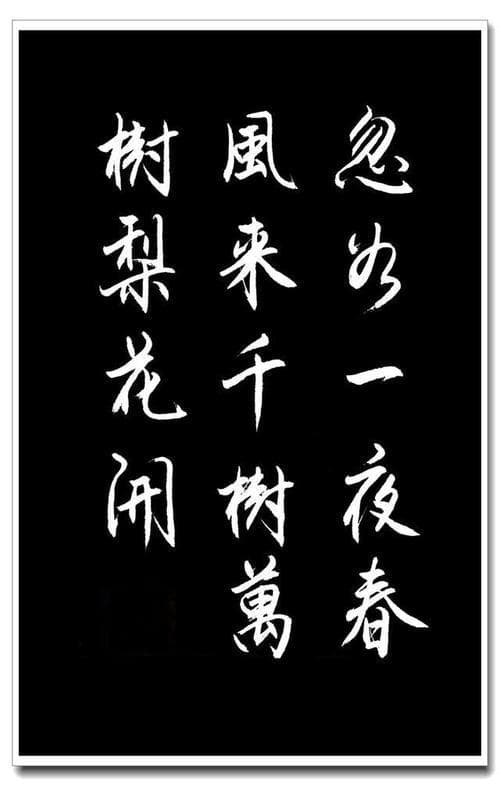 忽如一夜春
風来千樹萬
樹梨花開